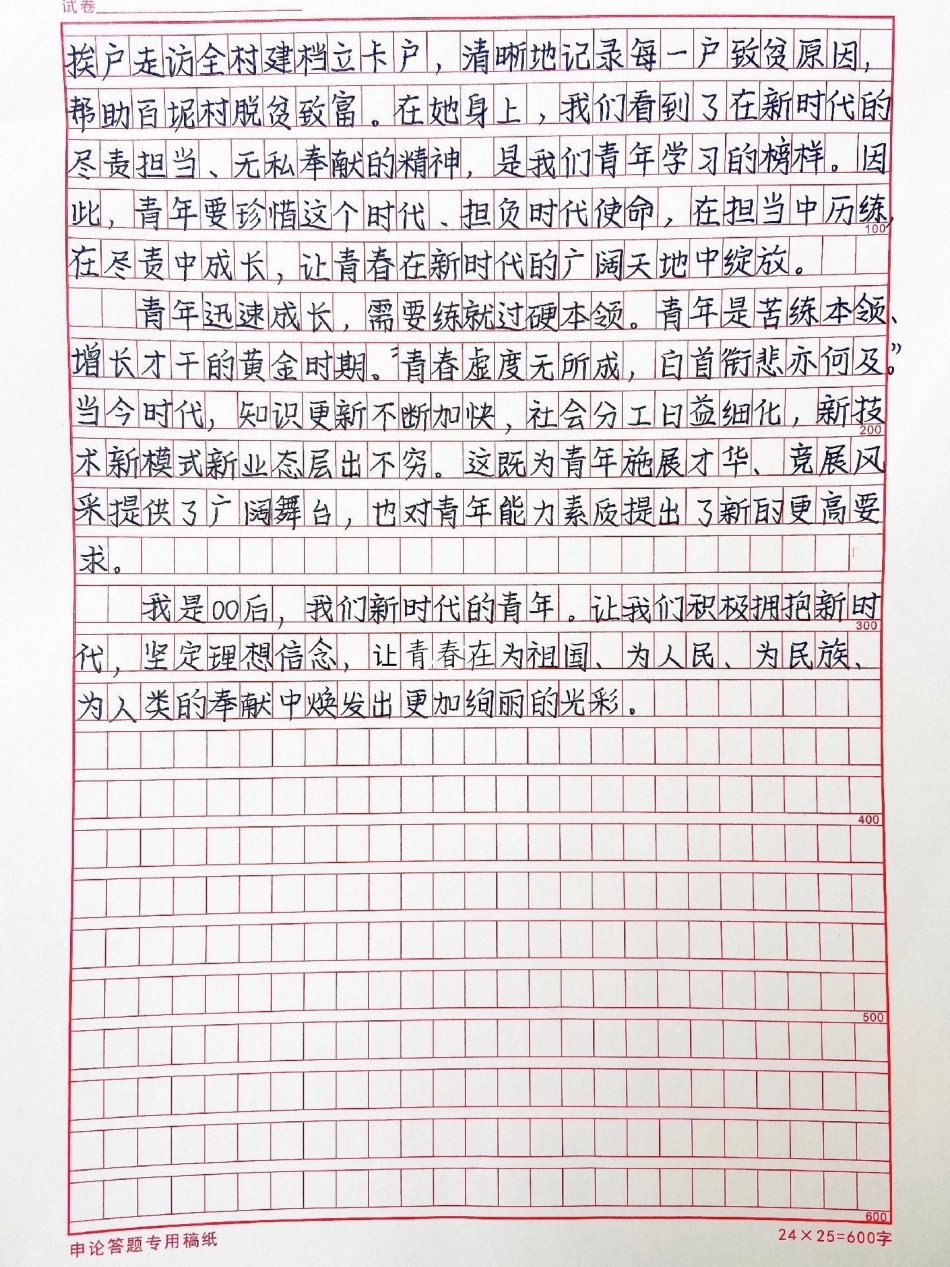 试卷
挨户走访全村建档立卡户，清晰地记录每一户致贫原因，
帮助百坭村脱贫致富。在她身上，我们看到了在新时代的
尽责担当、无私奉献的精神，是我们青年学习的榜样。因
此，青年要珍惜这个时代、担负时代使命，在担当中历练，
100
在尽责中成长，让青春在新时代的广阔天地中绽放。
青年迅速成长，需要练就过硬本领。青年是苦练本领、
增长才干的黄金时期。“青春虚度无所成，白首衔悲亦何及。”
当今时代，知识更新不断加快，社会分工日益细化，新技
200
术新模式新业态层出不穷。这既为青年施展才华、竞展风
采提供了广阔舞台，也对青年能力素质提出了新的更高要
求。
我是00后，我们新时代的青年。让我们积极拥抱新时
300
代，坚定理想信念，让青春在为祖国、为人民、为民族、
为人类的奉献中焕发出更加绚丽的光彩。
400
500
600
申论答题专用稿纸
24×25=600字